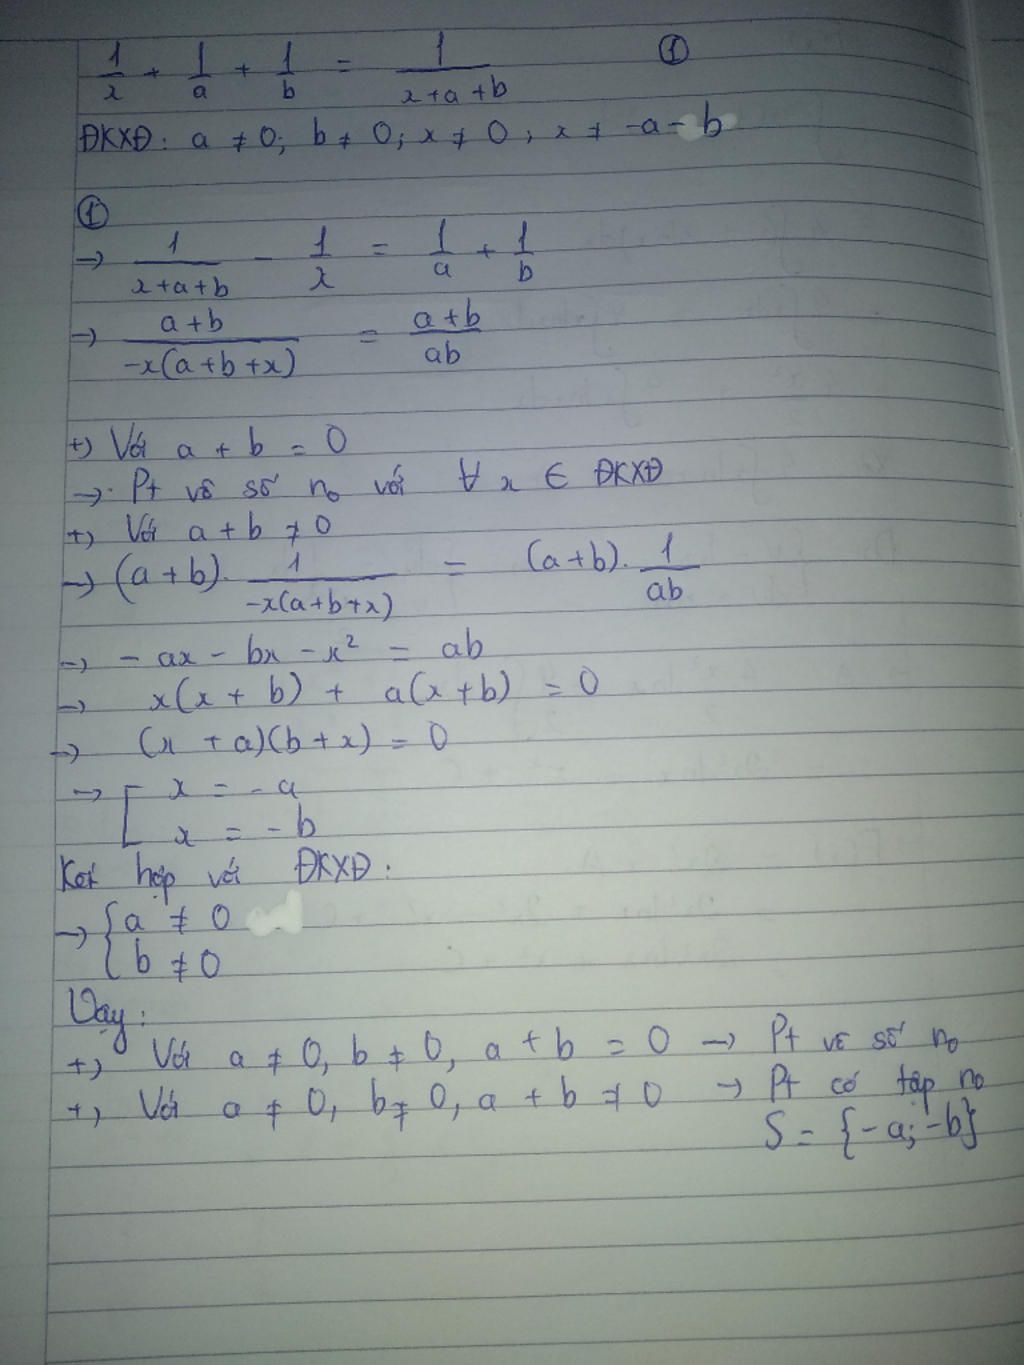 1/x + 1/a + 1/b = 1/(x+a+b) ①
ĐKXĐ: a ≠ 0; b ≠ 0; x ≠ 0; x ≠ -a-b
①
→ 1/(x+a+b) - 1/x = 1/a + 1/b
→ (a+b)/(-x(a+b+x)) = (a+b)/(ab)
+) Với a + b = 0
→ Pt vô số no với ∀ x ∈ ĐKXĐ
+) Với a + b ≠ 0
→ (a+b). 1/(-x(a+b+x)) = (a+b). 1/(ab)
→ - ax - bx - x² = ab
→ x(x + b) + a(x+b) = 0
→ (x + a)(b+x) = 0
→ [ x = -a
x = -b
Kết hợp với ĐKXĐ:
→ { a ≠ 0
b ≠ 0
Vậy:
+) Với a ≠ 0, b ≠ 0, a + b = 0 → Pt vô số no
+) Với a ≠ 0, b ≠ 0, a + b ≠ 0 → Pt có tập no
S = {-a; -b}